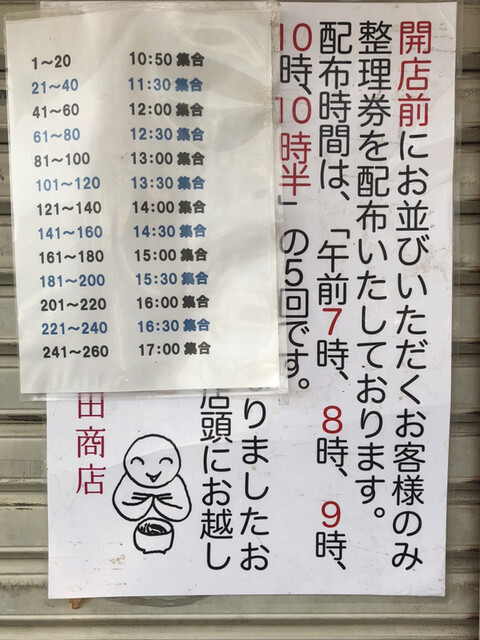 1～20 10:50 集合
21～40 11:30 集合
41～60 12:00 集合
61～80 12:30 集合
81～100 13:00 集合
101～120 13:30 集合
121～140 14:00 集合
141～160 14:30 集合
161～180 15:00 集合
181～200 15:30 集合
201～220 16:00 集合
221～240 16:30 集合
241～260 17:00 集合
開店前にお並びいただくお客様のみ
整理券を配布いたしております。
配布時間は、「午前7時、8時、9時、
10時、10時半」の5回です。
りましたお
店頭にお越し
田商店